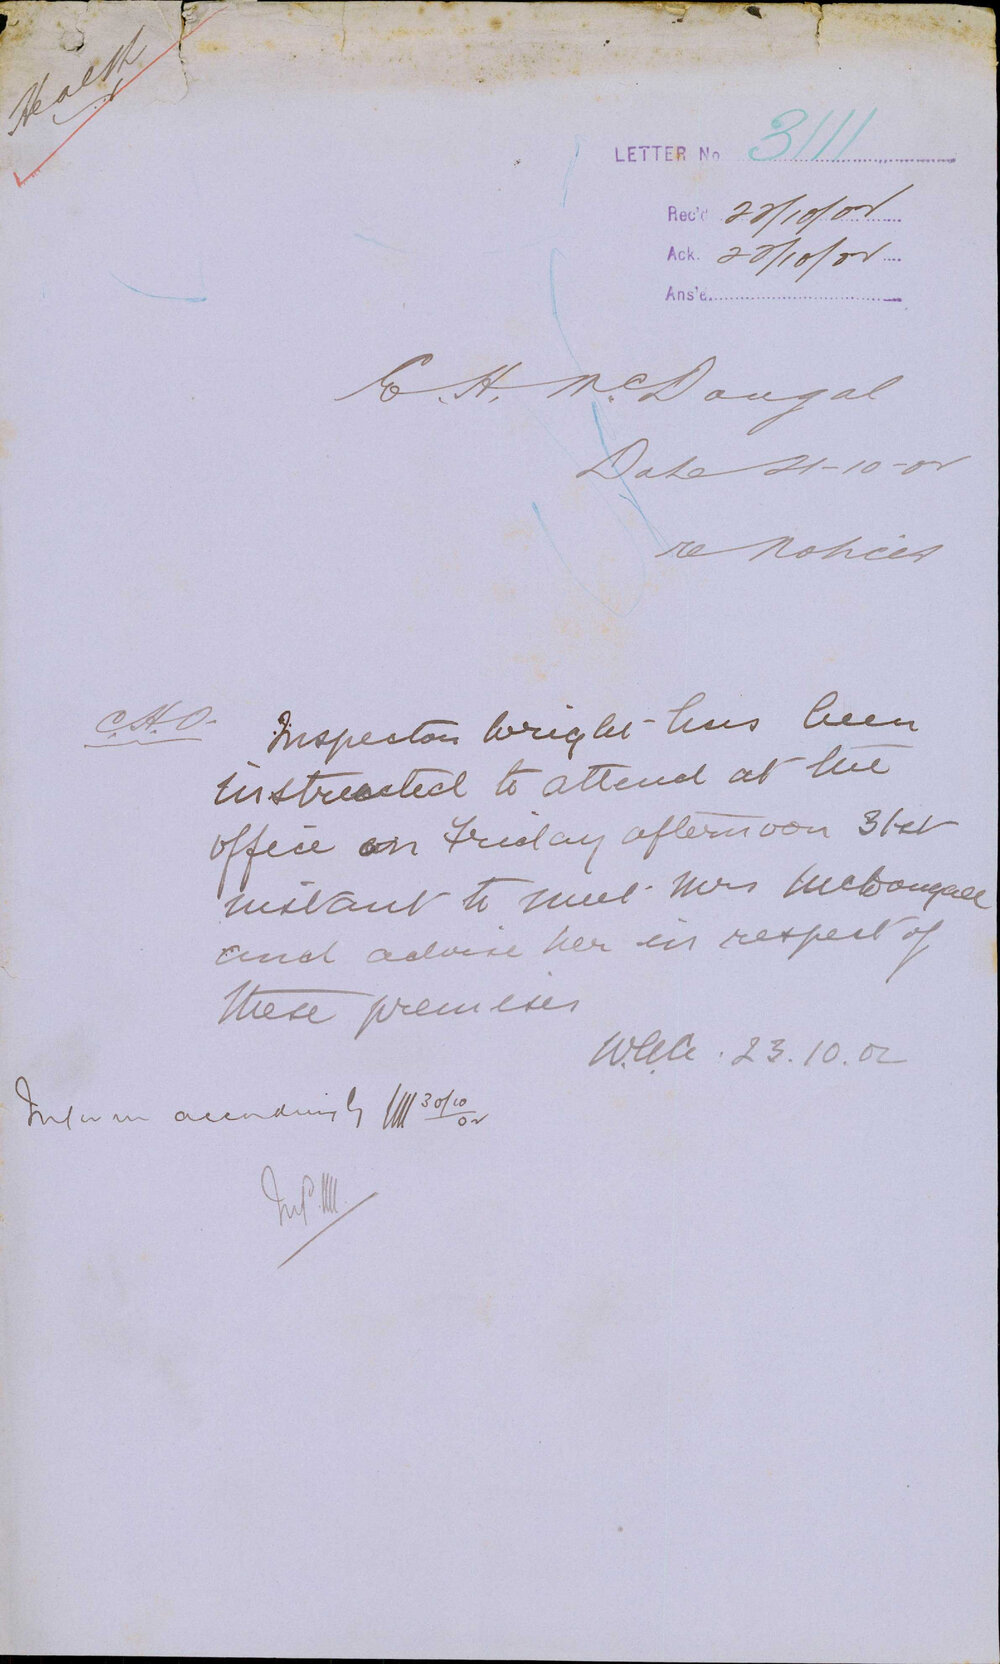 Health
LETTER No 3111
Rec'd 22/10/02
Ack. 22/10/02
Ans'd.
E. H. McDougal
Date 21-10-02
re Notices
C.H.O. Inspector Wright has been
instructed to attend at the
office on Friday afternoon 31st
instant to meet Mrs McDougall
and advise her in respect of
these premises
23.10.02
Inform accordingly 30/10/02